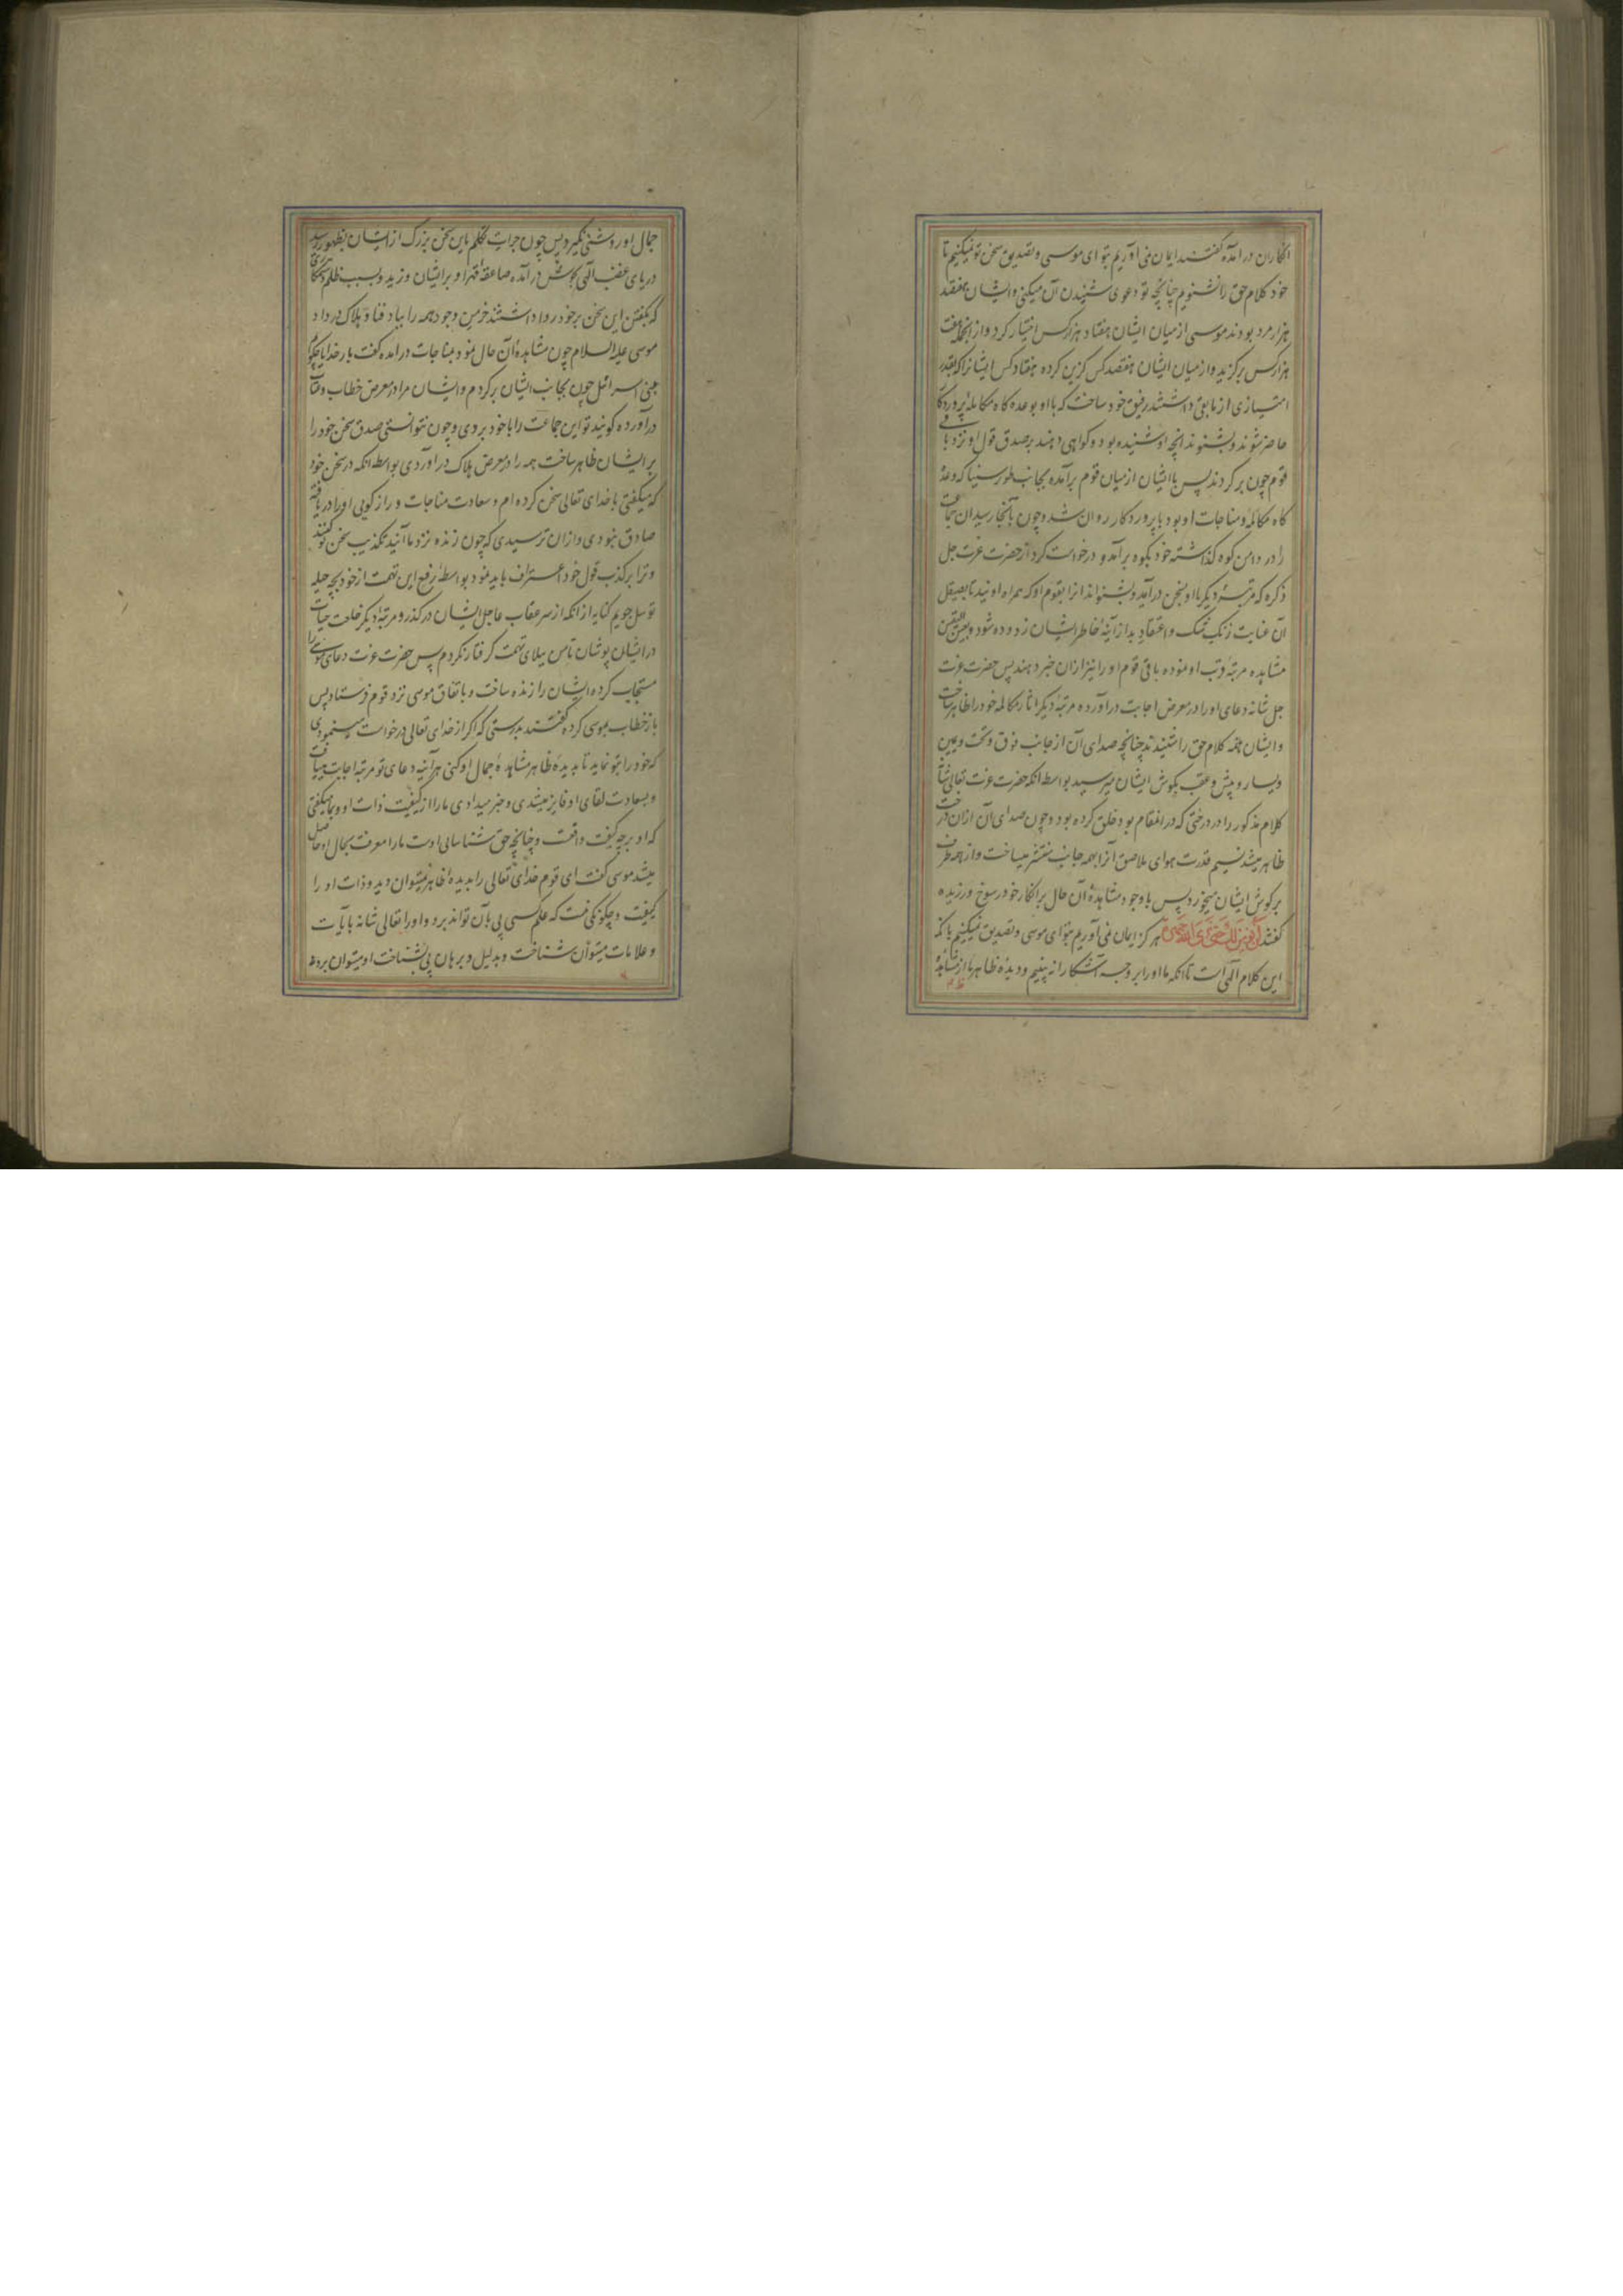 انکار ان درآمده کفتند ایمان نمی آوریم بتو ای موسی و تصدیق سخن تو نمیکنیم تا
خود کلام حق را نشنویم چنانچه تو دعوی شنیدن آن میکنی و ایشان هفتصد
هزار مرد بودند موسی از میان ایشان هفتاد هزار کس اختیار کرد و از انجمله هفت
هزار کس برکزید و از میان ایشان هفتصد کس کزین کرده هفتاد کس ایشانرا که بقدر
امتیازی از مابقی داشتند رفیق خود ساخت که با او بوعده کاه مکالمه پروردکار
حاضر شوند و بشنوند انچه او شنیده بود و کواهی دهند بر صدق قول او نزد باقی
قوم چون برکردند پس با ایشان از میان قوم برآمده بجانب طور سینا که وعد
کاه مکالمه و مناجات او بود با پروردکار روان شد و چون بآنجا رسید ان جماعت
را در دامن کوه کذاشته خود بکوه برآمد و درخواست کرد از حضرت عزت جل
ذکره که مرتبه دیکر با او بسخن درآید و بشنواند انرا بقوم او که همراه اویند تا بصیقل
آن عنایت زنک شک و اعتقاد بد از آینه خاطر ایشان زدوده شود و بعین الیقین
مشاهده مرتبه قرب او نموده باقی قوم او را نیز ازان خبر دهند پس حضرت عزت
جل شانه دعای او را در معرض اجابت درآورده مرتبه دیکر اثار مکالمه خود را ظاهر ساخت
و ایشان همه کلام حق را شنیدند چنانچه صدای آن از جانب فوق و تحت و یمین
و یسار و پیش و عقب بکوش ایشان میرسید بواسطه انکه حضرت عزت تعالی شانه
کلام مذکور را در درختی که در انمقام بود خلق کرده بود و چون صدای آن ازان درخت
ظاهر میشد نسیم قدرت هوای ملاصق آنرا بهمه جانب منتشر میساخت و از همه طرف
بر کوش ایشان میخورد پس با وجود مشاهده آن حال بر انکار خود رسوخ ورزیده
کفتند لن نؤمن لک حتی نری الله جهرة هر کز ایمان نمی آوریم بتو ای موسی و تصدیق نمیکنیم بانکه
این کلام آلهی است تا انکه ما او را بر وجه آشکارا نه بینیم و دیده ظاهر ما از مشاهده
جمال او روشنی نکیرد پس چون جرات تکلم باین سخن بزرک از ایشان بظهور رسید
دریای غضب آلهی بجوش درآمده صاعقه قهر او بر ایشان وزید و بسبب ظلم
که بکفتن این سخن بر خود روا داشتند خرمن وجود همه را بباد فنا و هلاک در داد
موسی علیه السلام چون مشاهده آن حال نمود بمناجات درامده کفت بار خدایا چکویم
ببنی اسرائل چون بجانب ایشان برکردم و ایشان مرا در معرض خطاب و عتاب
درآورده کویند تو این جماعت را با خود بردی و چون نتوانستی صدق سخن خود را
بر ایشان ظاهر ساخت همه را در معرض هلاک دراوردی بواسطه انکه در سخن خود
که میکفتی با خدای تعالی سخن کرده ام و سعادت مناجات و راز کویی او را دریافته
صادق نبودی و ازان ترسیدی که چون زنده نزد ما آیند تکذیب سخن تو کنند
و ترا بر کذب قول خود اعتراف باید نمود بواسطه رفع این تهمت از خود بچه حیله
توسل جویم کنایه از انکه از سر عقاب عاجل ایشان درکذر و مرتبه دیکر خلعت حیات
در ایشان پوشان تا من ببلای تهمت کرفتار نکردم پس حضرت عزت دعای موسی را
مستجاب کرده ایشان را زنده ساخت و باتفاق موسی نزد قوم فرستاد پس
باز خطاب بموسی کرده کفتند بدرستی که اکر از خدای تعالی درخواست مینمودی
که خود را بتو نماید تا بدیده ظاهر مشاهده جمال او کنی هرآینه دعای تو مرتبه اجابت مییافت
و بسعادت لقای او فایز میشدی و خبر میدادی ما را از کیفیت ذات او و بما میکفتی
که او بر چه کیفیت واقعست و چنانچه حق شناسائی اوست ما را معرفت بحال او حاصل
میشد موسی کفت ای قوم خدای تعالی را بدیده ظاهر نمیتوان دید و ذات او را
کیفیت و چکونکی نیست که علم کسی پی بآن تواند برد و او را تعالی شانه بآیات
و علامات میتوان شناخت و بدلیل و برهان پی بشناخت او میتوان برد